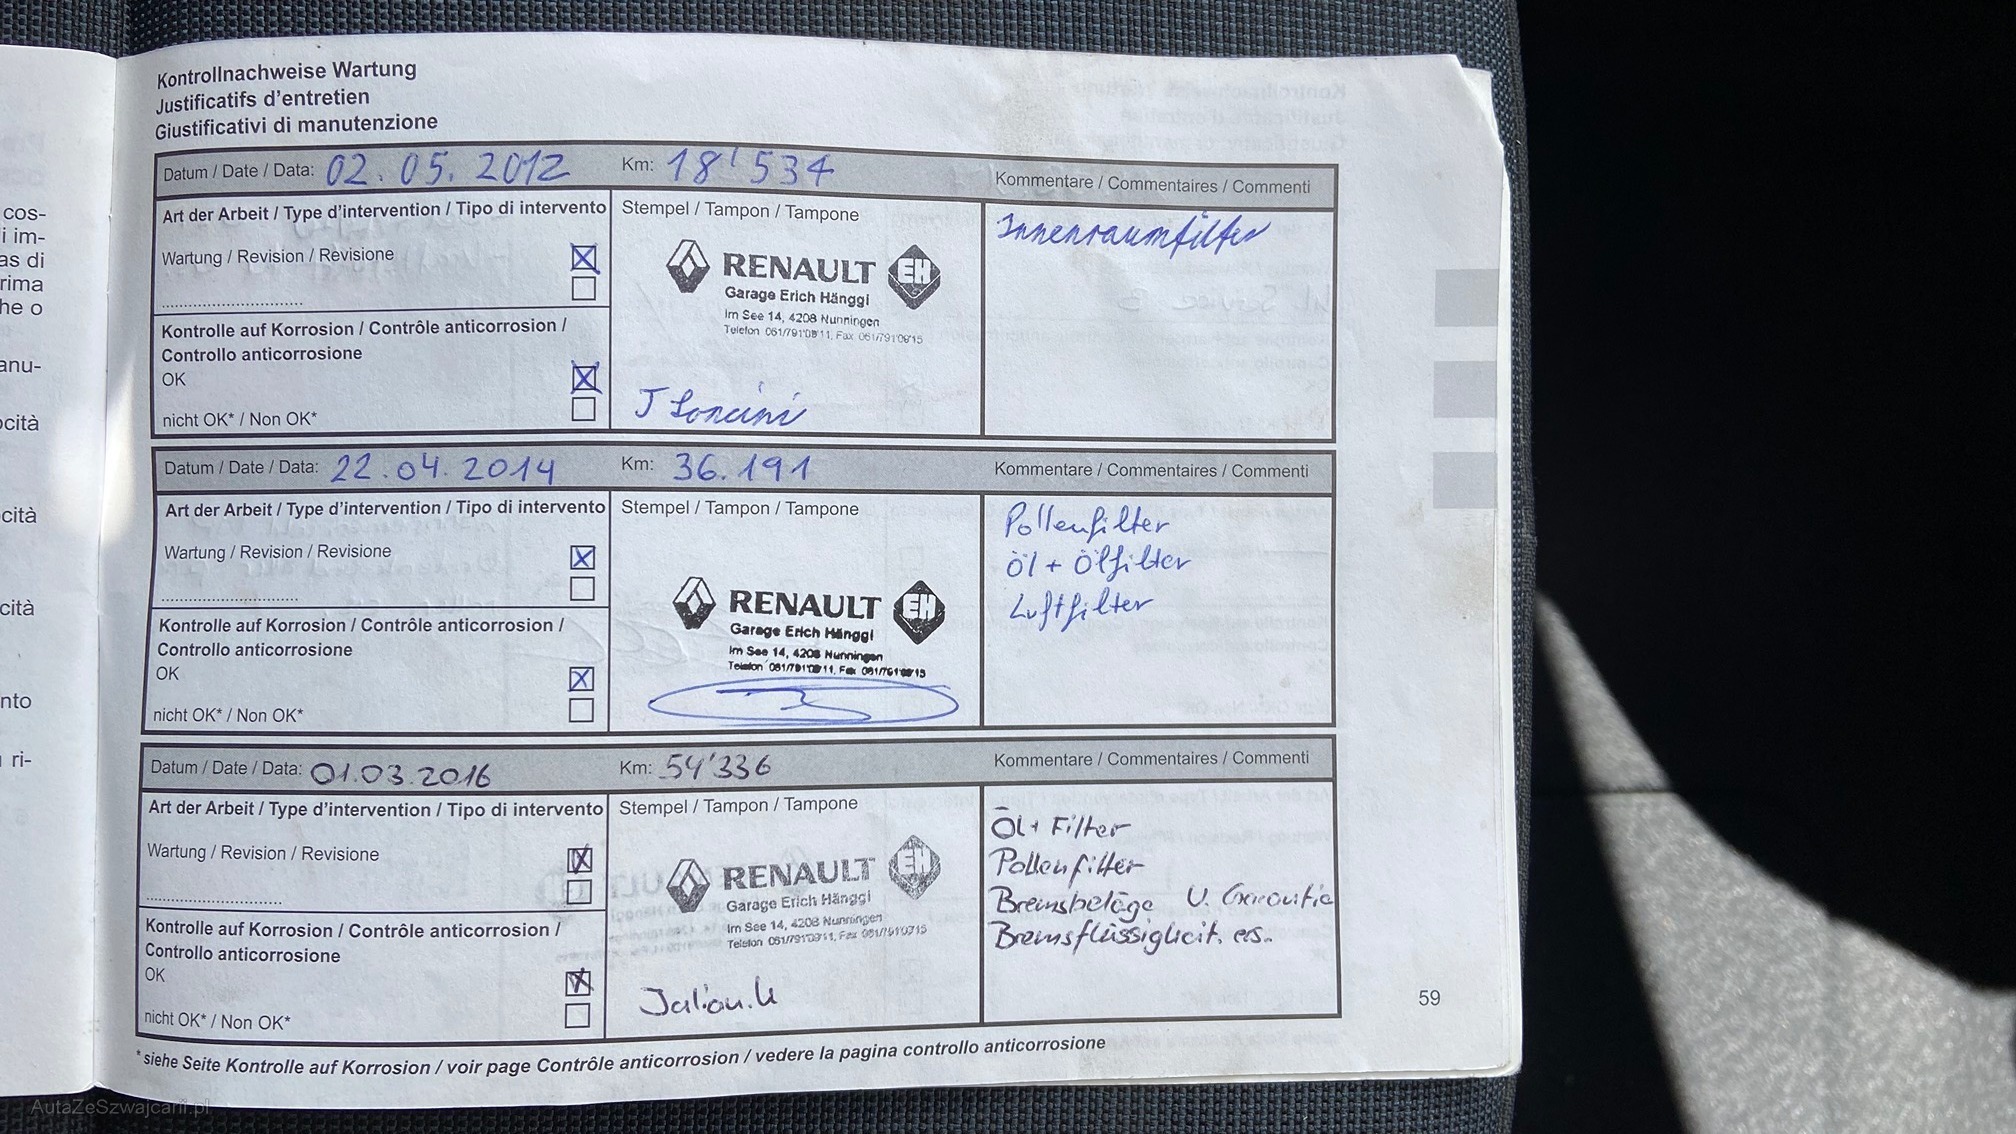 cos-
i im-
as di
rima
he o
anu-
ocità
cità
cità
nto
ri-
Kontrollnachweise Wartung
Justificatifs d'entretien
Giustificativi di manutenzione
Datum / Date / Data: 02.05.2012 Km: 18'534 Kommentare / Commentaires / Commenti
Art der Arbeit / Type d'intervention / Tipo di intervento
Stempel / Tampon / Tampone
Innenraumfilter
Wartung / Revision / Revisione
RENAULT EH
Garage Erich Hänggi
Im See 14, 4208 Nunningen
Telefon 061/791'09'11, Fax 061/791'09'15
Kontrolle auf Korrosion / Contrôle anticorrosion /
Controllo anticorrosione
OK
nicht OK* / Non OK*
Datum / Date / Data: 22.04.2014 Km: 36.191 Kommentare / Commentaires / Commenti
Art der Arbeit / Type d'intervention / Tipo di intervento
Stempel / Tampon / Tampone
Pollenfilter
Öl + Ölfilter
Luftfilter
Wartung / Revision / Revisione
RENAULT EH
Garage Erich Hänggi
Im See 14, 4208 Nunningen
Telefon 061/791'09'11, Fax 061/791'09'15
Kontrolle auf Korrosion / Contrôle anticorrosion /
Controllo anticorrosione
OK
nicht OK* / Non OK*
Datum / Date / Data: 01.03.2016 Km: 54'336 Kommentare / Commentaires / Commenti
Art der Arbeit / Type d'intervention / Tipo di intervento
Stempel / Tampon / Tampone
Öl + Filter
Pollenfilter
Bremsbeläge V.
Bremsflüssigkeit. ers.
Wartung / Revision / Revisione
RENAULT EH
Garage Erich Hänggi
Im See 14, 4208 Nunningen
Telefon 061/791'09'11, Fax 061/791'09'15
Kontrolle auf Korrosion / Contrôle anticorrosion /
Controllo anticorrosione
OK
nicht OK* / Non OK*
*siehe Seite Kontrolle auf Korrosion / voir page Contrôle anticorrosion / vedere la pagina controllo anticorrosione
59
AutaZeSzwajcarii.pl